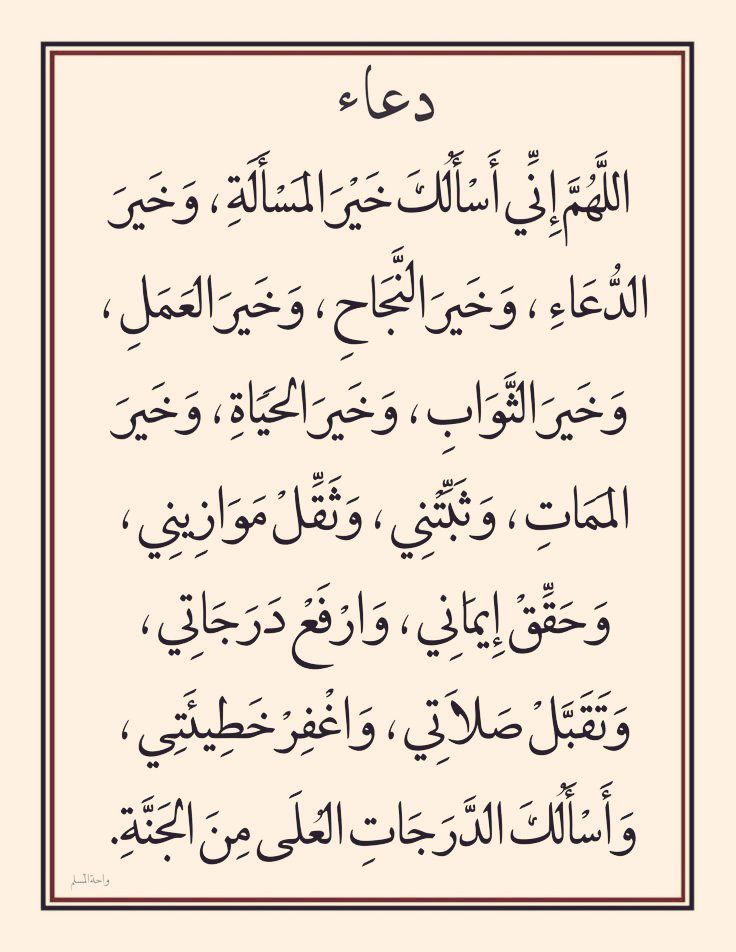 دعاء
اللَّهُمَّ إِنِّي أَسْأَلُكَ خَيْرَ المَسْأَلَةِ ، وَخَيرَ
الدُّعَاءِ ، وَخَيرَ النَّجَاحِ ، وَخَيرَ العَمَلِ ،
وَخَيرَ الثَّوَابِ ، وَخَيرَ الحَيَاةِ ، وَخَيرَ
المَمَاتِ ، وَثَبِّتْنِي ، وَثَقِّلْ مَوَازِينِي ،
وَحَقِّقْ إِيمَانِي ، وَارْفَعْ دَرَجَاتِي ،
وَتَقَبَّلْ صَلاَتِي ، وَاغْفِرْ خَطِيئَتِي ،
وَأَسْأَلُكَ الدَّرَجَاتِ العُلَى مِنَ الجَنَّةِ.
واحة المسلم